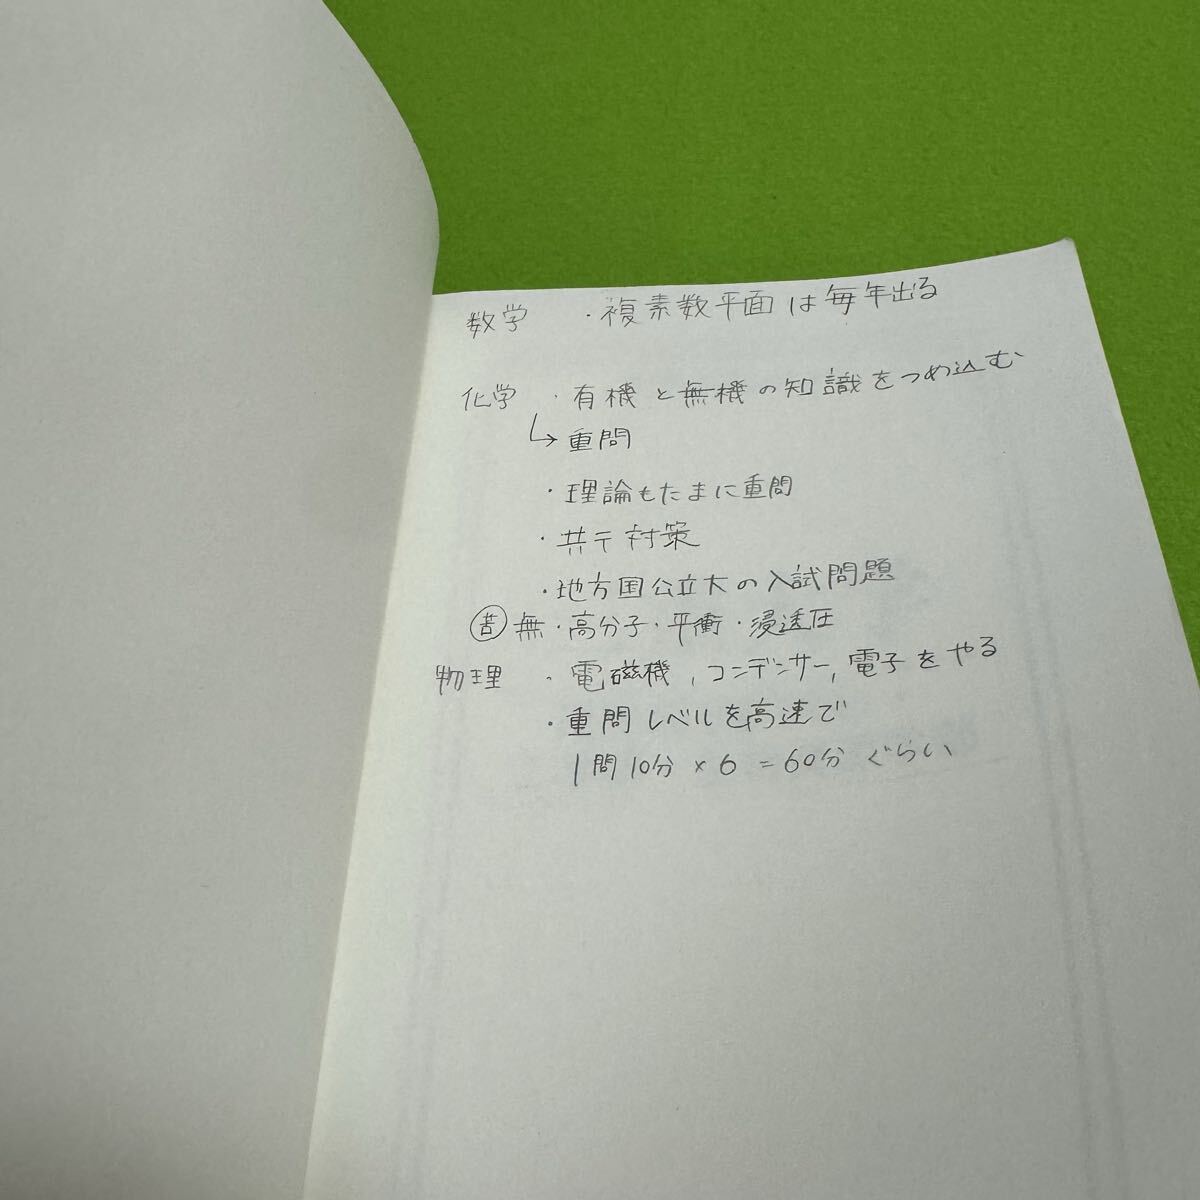 数学 ・複素数平面は毎年出る
化学 ・有機と無機の知識をつめ込む
↳重問
・理論もたまに重問
・共テ対策
・地方国公立大の入試問題
㊁苦 無・高分子・平衝・浸透圧
物理 ・電磁機, コンデンサー, 電子をやる
・重問レベルを高速で
1問10分×6=60分ぐらい